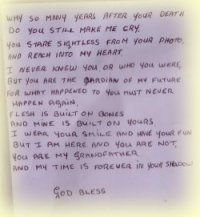 WHY SO MANY YEARS AFTER YOUR DEATH
DO YOU STILL MAKE ME CRY,
YOU STARE SIGHTLESS FROM YOUR PHOTO,
AND REACH INTO MY HEART.
I NEVER KNEW YOU OR WHO YOU WERE,
BUT YOU ARE THE GUARDIAN OF MY FUTURE
FOR WHAT HAPPENED TO YOU MUST NEVER
HAPPEN AGAIN,
FLESH IS BUILT ON BONES
AND MINE IS BUILT ON YOURS
I WEAR YOUR SMILE AND HAVE YOUR FUN
BUT I AM HERE AND YOU ARE NOT,
YOU ARE MY GRANDFATHER
AND MY TIME IS FOREVER IN YOUR SHADOW
GOD BLESS